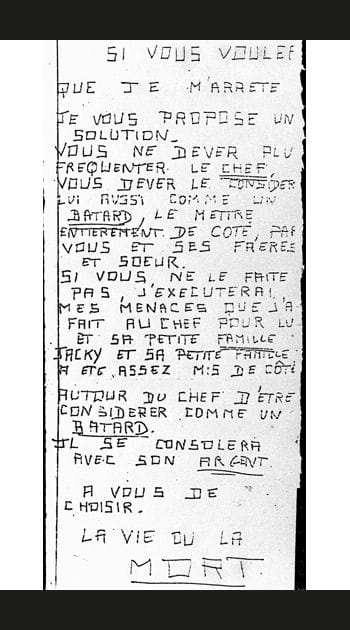 SI VOUS VOULEF
QUE JE M'ARRETE
JE VOUS PROPOSE UN
SOLUTION_
VOUS NE DEVER PLU
FREQUENTER LE CHEF,
VOUS DEVER LE CONSIDER
LUI AUSSI COMME UN
BATARD, LE METTRE
ENTIEREMENT DE COTE, PAR
VOUS ET SES FRERES
ET SOEUR.
SI VOUS NE LE FAITE
PAS, J'EXECUTERAI
MES MENACES QUE J'A
FAIT AU CHEF POUR LU
ET SA PETITE FAMILLE
JACKY ET SA PETITE FAMILLE
A ETE ASSEZ MIS DE CÔTÉ
AUTOUR DU CHEF D'ETRE
CONSIDERER COMME UN
BATARD.
IL SE CONSOLERA
AVEC SON ARGENT.
A VOUS DE
CHOISIR.
LA VIE OU LA
MORT.